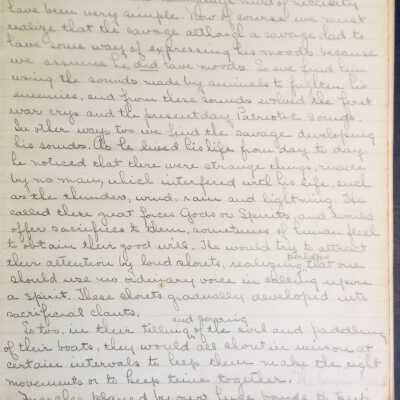 must of necessity
have been very simple. Now of course we must
realize that the savage although a savage had to
have some way of expressing his moods because
we assume he did have moods. So we find him
using the sounds made by animals to frighten his
enemies, and from these sounds evolved the first
war crys and the present day Patriotic sounds.
In other ways too we find the savage developing
his sounds. As he lived his life from day to day
he noticed that there were strange things, made
by no man, which interfered with his life, such
as the thunder, wind, rain and lightning. He
called these great forces Gods or Spirits, and would
offer sacrifices to them, sometimes of human flesh
to obtain their good will. He would try to attract
perhaps
their attention by loud shouts, realizing that one
should use no ordinary voice in calling upon
a spirit. These shouts gradually developed into
sacrificial chants.
and
So too, in their tilling of the soil and paddling
of their boats, they would all shout in unison at
certain intervals to help them make the right
movements or to keep time together.
played by new